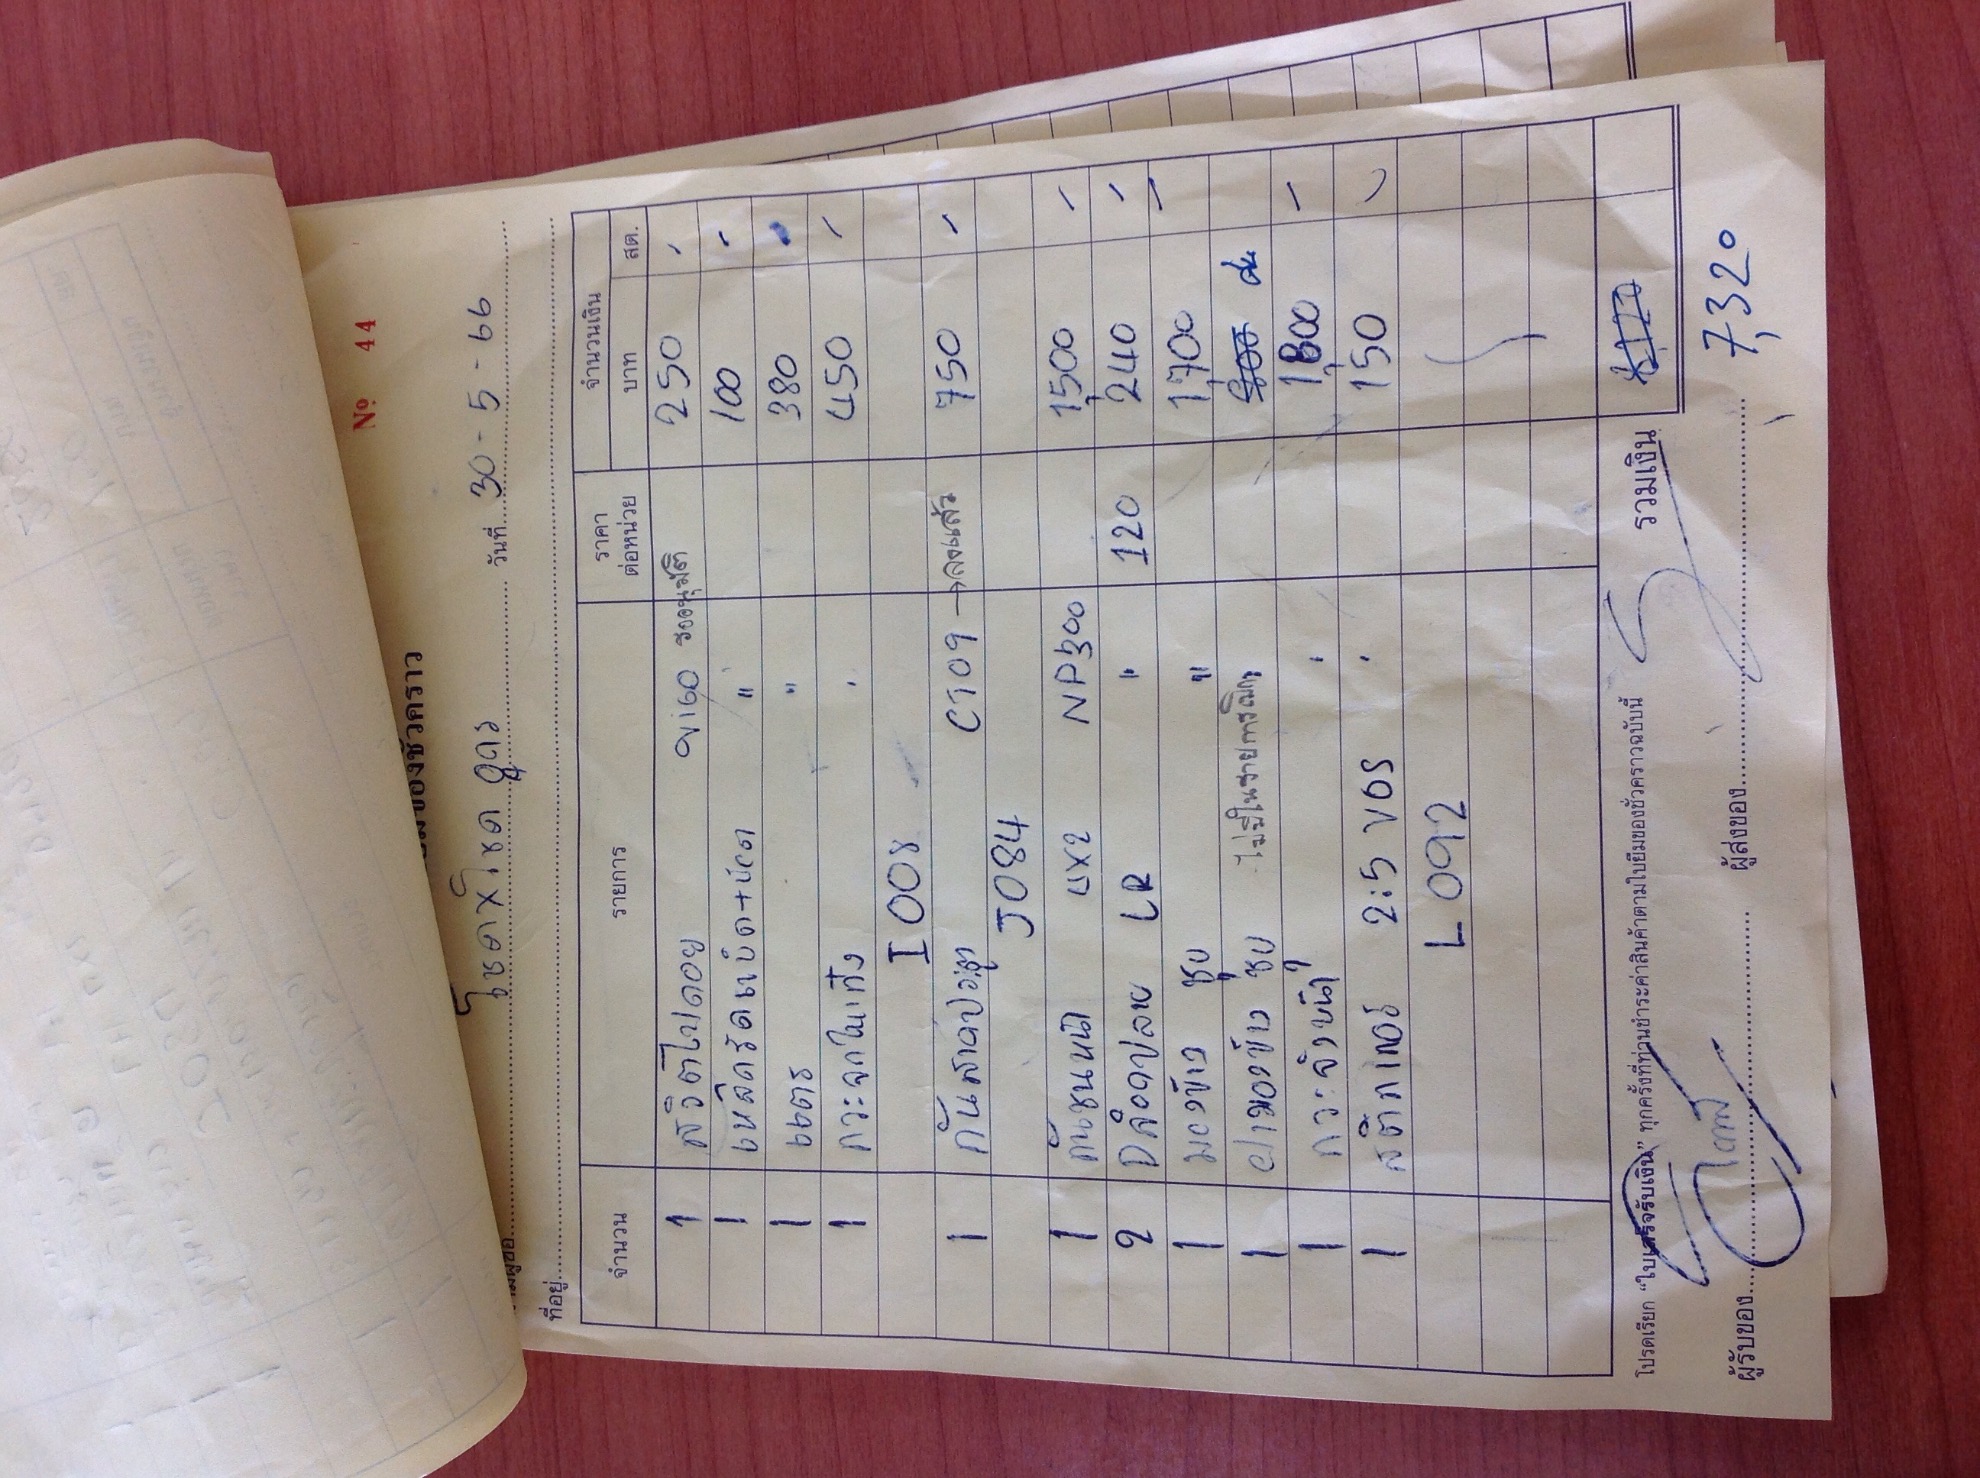 ของชั่วคราว
Nº 44
โชคชัยโชค อุดร วันที่ 30-5-66
ที่อยู่
จำนวน รายการ ราคาต่อหน่วย จำนวนเงิน
บาท สต.
1 สวิตไปดอย vigo รออนุมัติ 250 -
1 เหล็กรัดแบ็ต+น๊อต " 100 -
1 แตร " 380
1 กระจกในเก๋ง " 450 -
I 008
1 กันสาดประตู CT09 → ลงแล้ว 750 -
J084
1 กันชนหน้า 4x2 NP300 1,500 -
2 ปลอกปลาย LR " 120 240 -
1 มองข้าง ชุบ " 1,700 -
1 ฝามองข้าง ชุบ ไม่มีในรายการเบิก
1 กระจังหน้า " 1,800 -
1 สติกเกอร์ 2:5 VGS " 150
L 092
โปรดเรียก "ใบเสร็จรับเงิน" ทุกครั้งที่ท่านชำระค่าสินค้าตามใบยืมของชั่วคราวฉบับนี้ รวมเงิน
7,320
ผู้รับของ ผู้ส่งของ